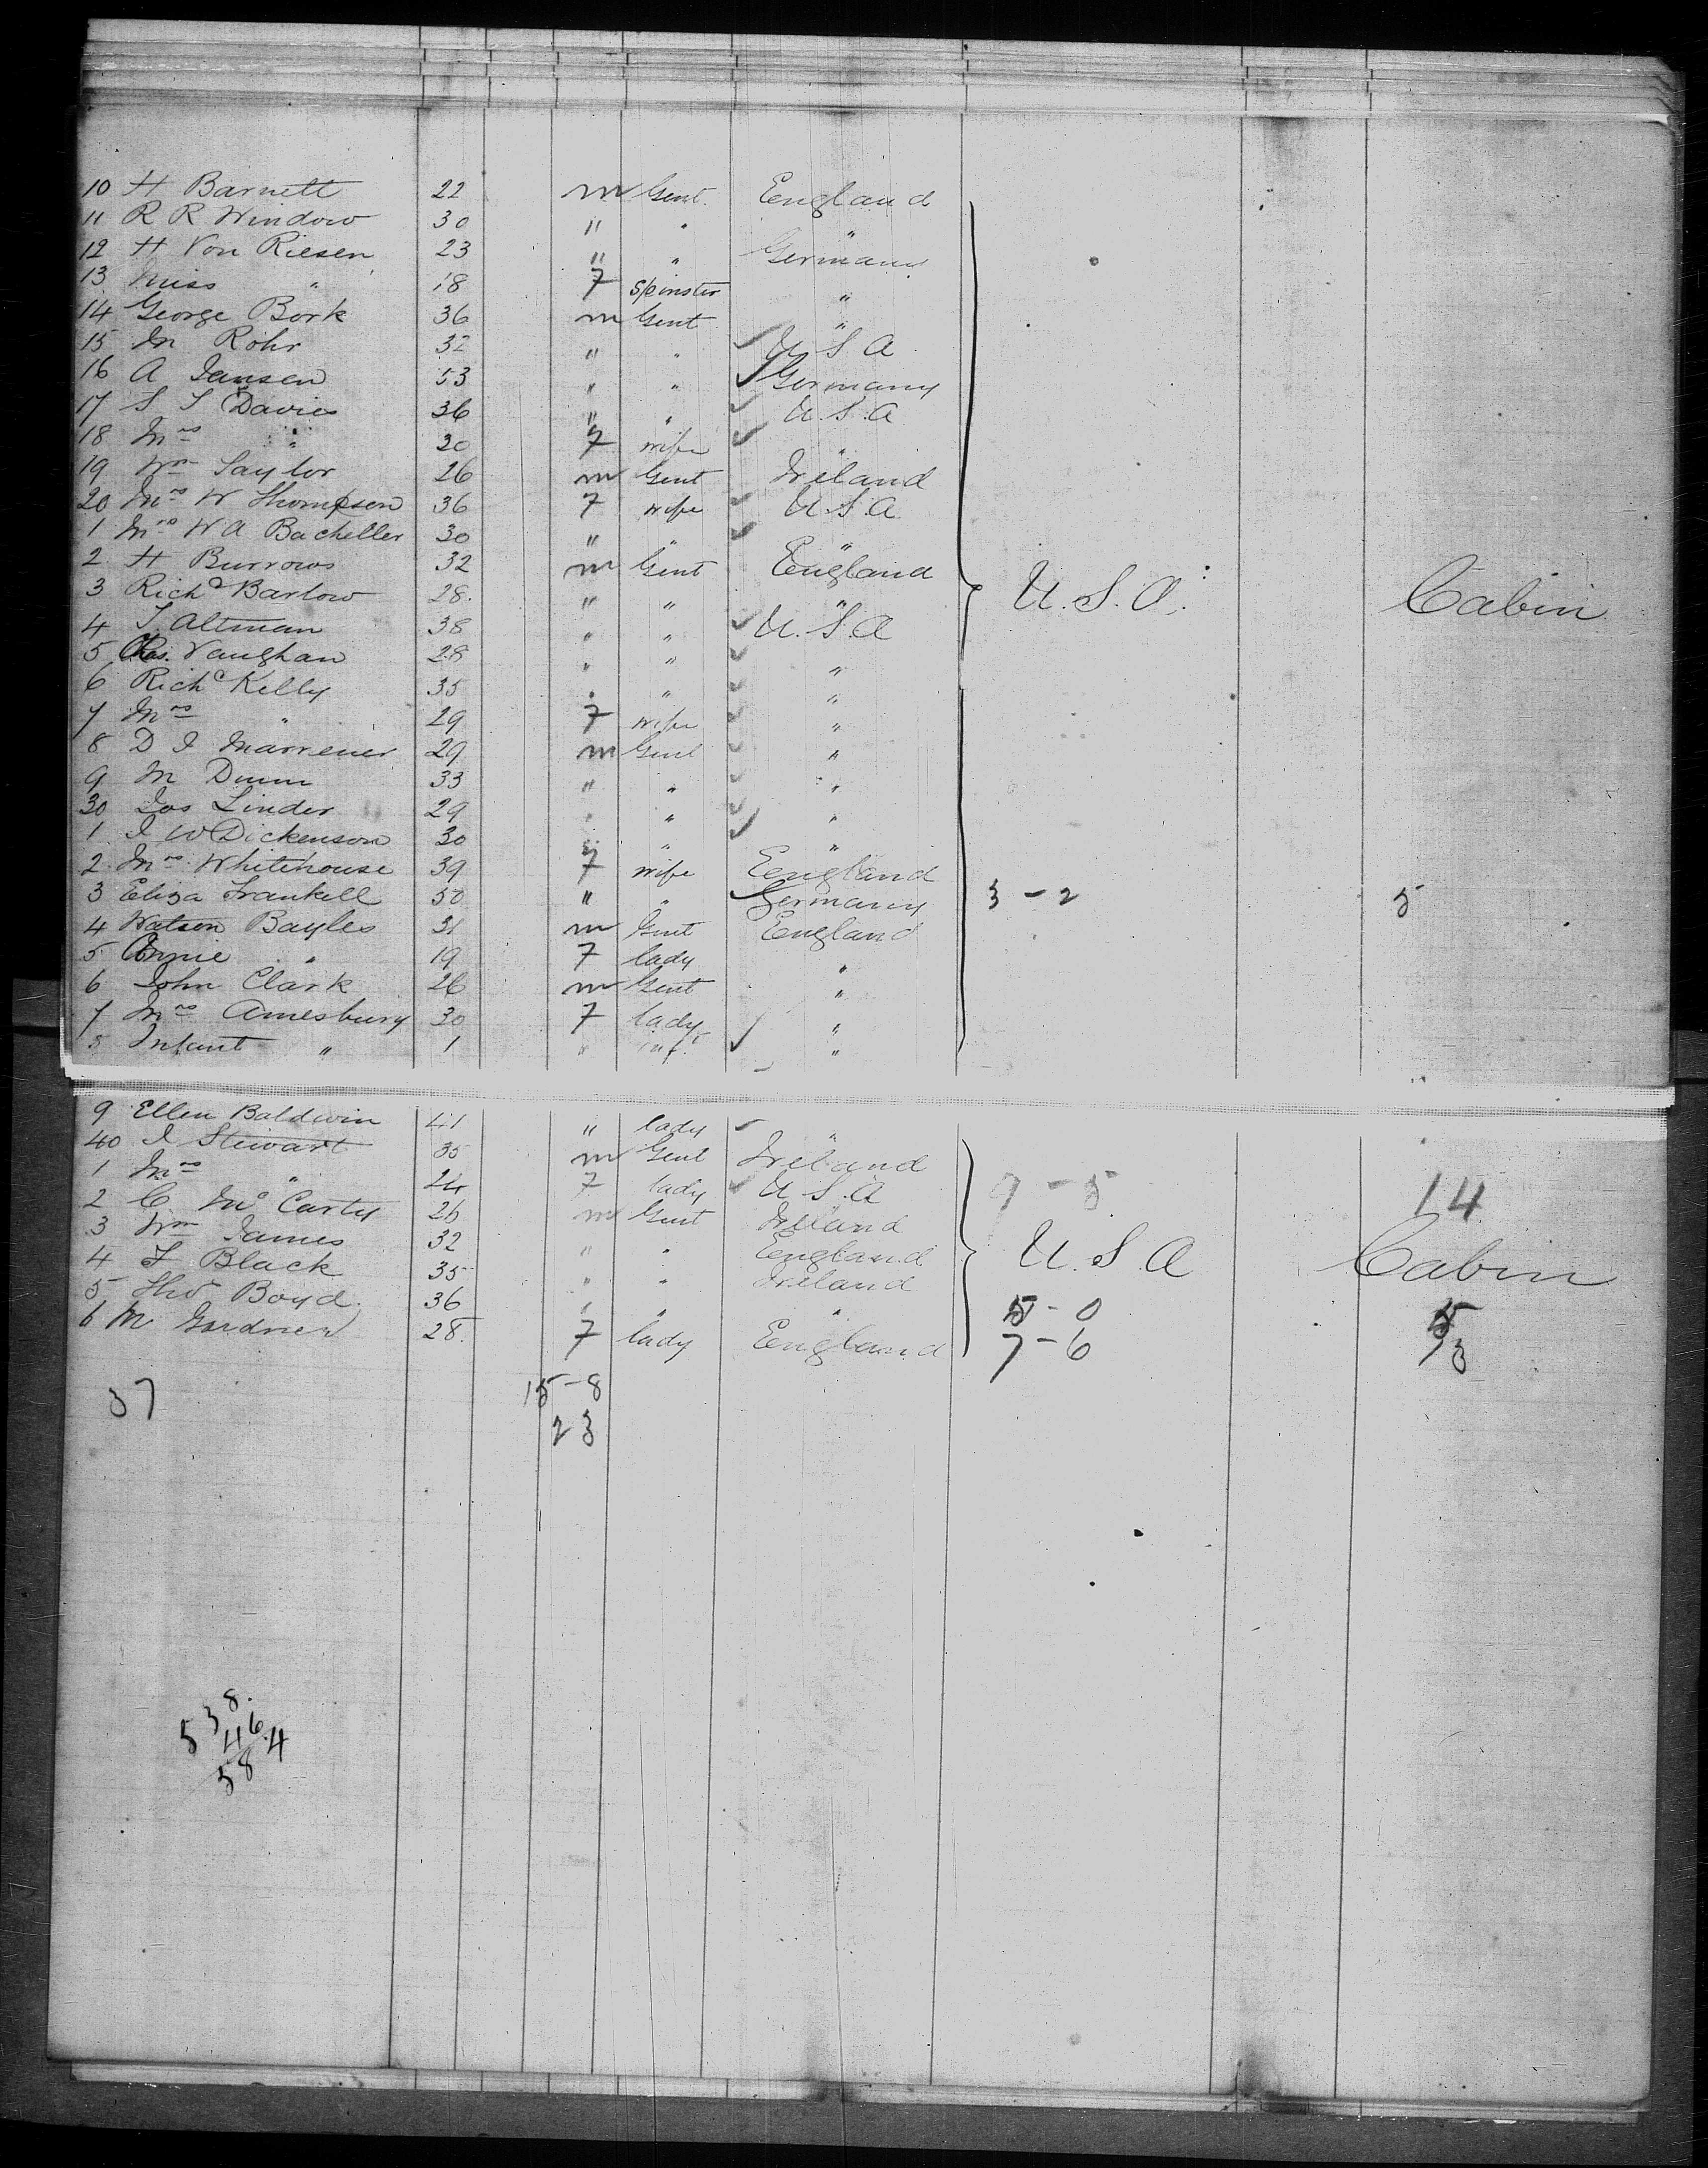 10 H Barnett 22 m Gent. England
11 R R Window 30 " " "
12 H Von Riesen 23 " " Germany
13 Miss " 18 7 Spinster "
14 George Bork 36 m Gent "
15 M Rohr 32 " " U S A
16 A Jansen 53 " " Germany
17 S S Davies 36 " " U.S.A.
18 Mrs " 20 7 wife "
19 Wm Taylor 26 m Gent Ireland
20 Mrs W Thompson 36 7 wife U.S.A
1 Mrs W A Bacheller 30 " " "
2 H Burrows 32 m Gent England
3 Richd Barlow 28. " " " U.S.A. Cabin
4 Altman 38 " " U.S.A
5 Chas. Vaughan 28 " " "
6 Richd Kelly 35 " " "
7 Mrs " 29 7 wife "
8 D J Marrener 29 m Gent "
9 M Dunn 33 " " "
30 Jos Linder 29 " " "
1 J W Dickenson 30 " " "
2 Mrs Whitehouse 39 7 wife England
3 Eliza Frankell 50 " " Germany 3 - 2 5
4 Watson Bayles 31 m Gent England
5 Annie " 19 7 lady "
6 John Clark 26 m Gent "
7 Mrs Amesbury 30 7 lady "
8 Infant " 1 " inf. "
9 Ellen Baldwin 41 " lady "
40 J Stewart 35 m Gent Ireland
1 Mrs " 24 7 lady U S A 9 - 5 14
2 C. McCarty 26 m Gent Ireland
3 Wm James 32 " " England U.S.A Cabin
4 F Black 35 " " Ireland
5 Thos Boyd. 36 " " " 5 - 0 5
6 M Gardner 28. 7 lady England 7 - 6
37 15 - 8
23
8.
5 3 4 6 4
58